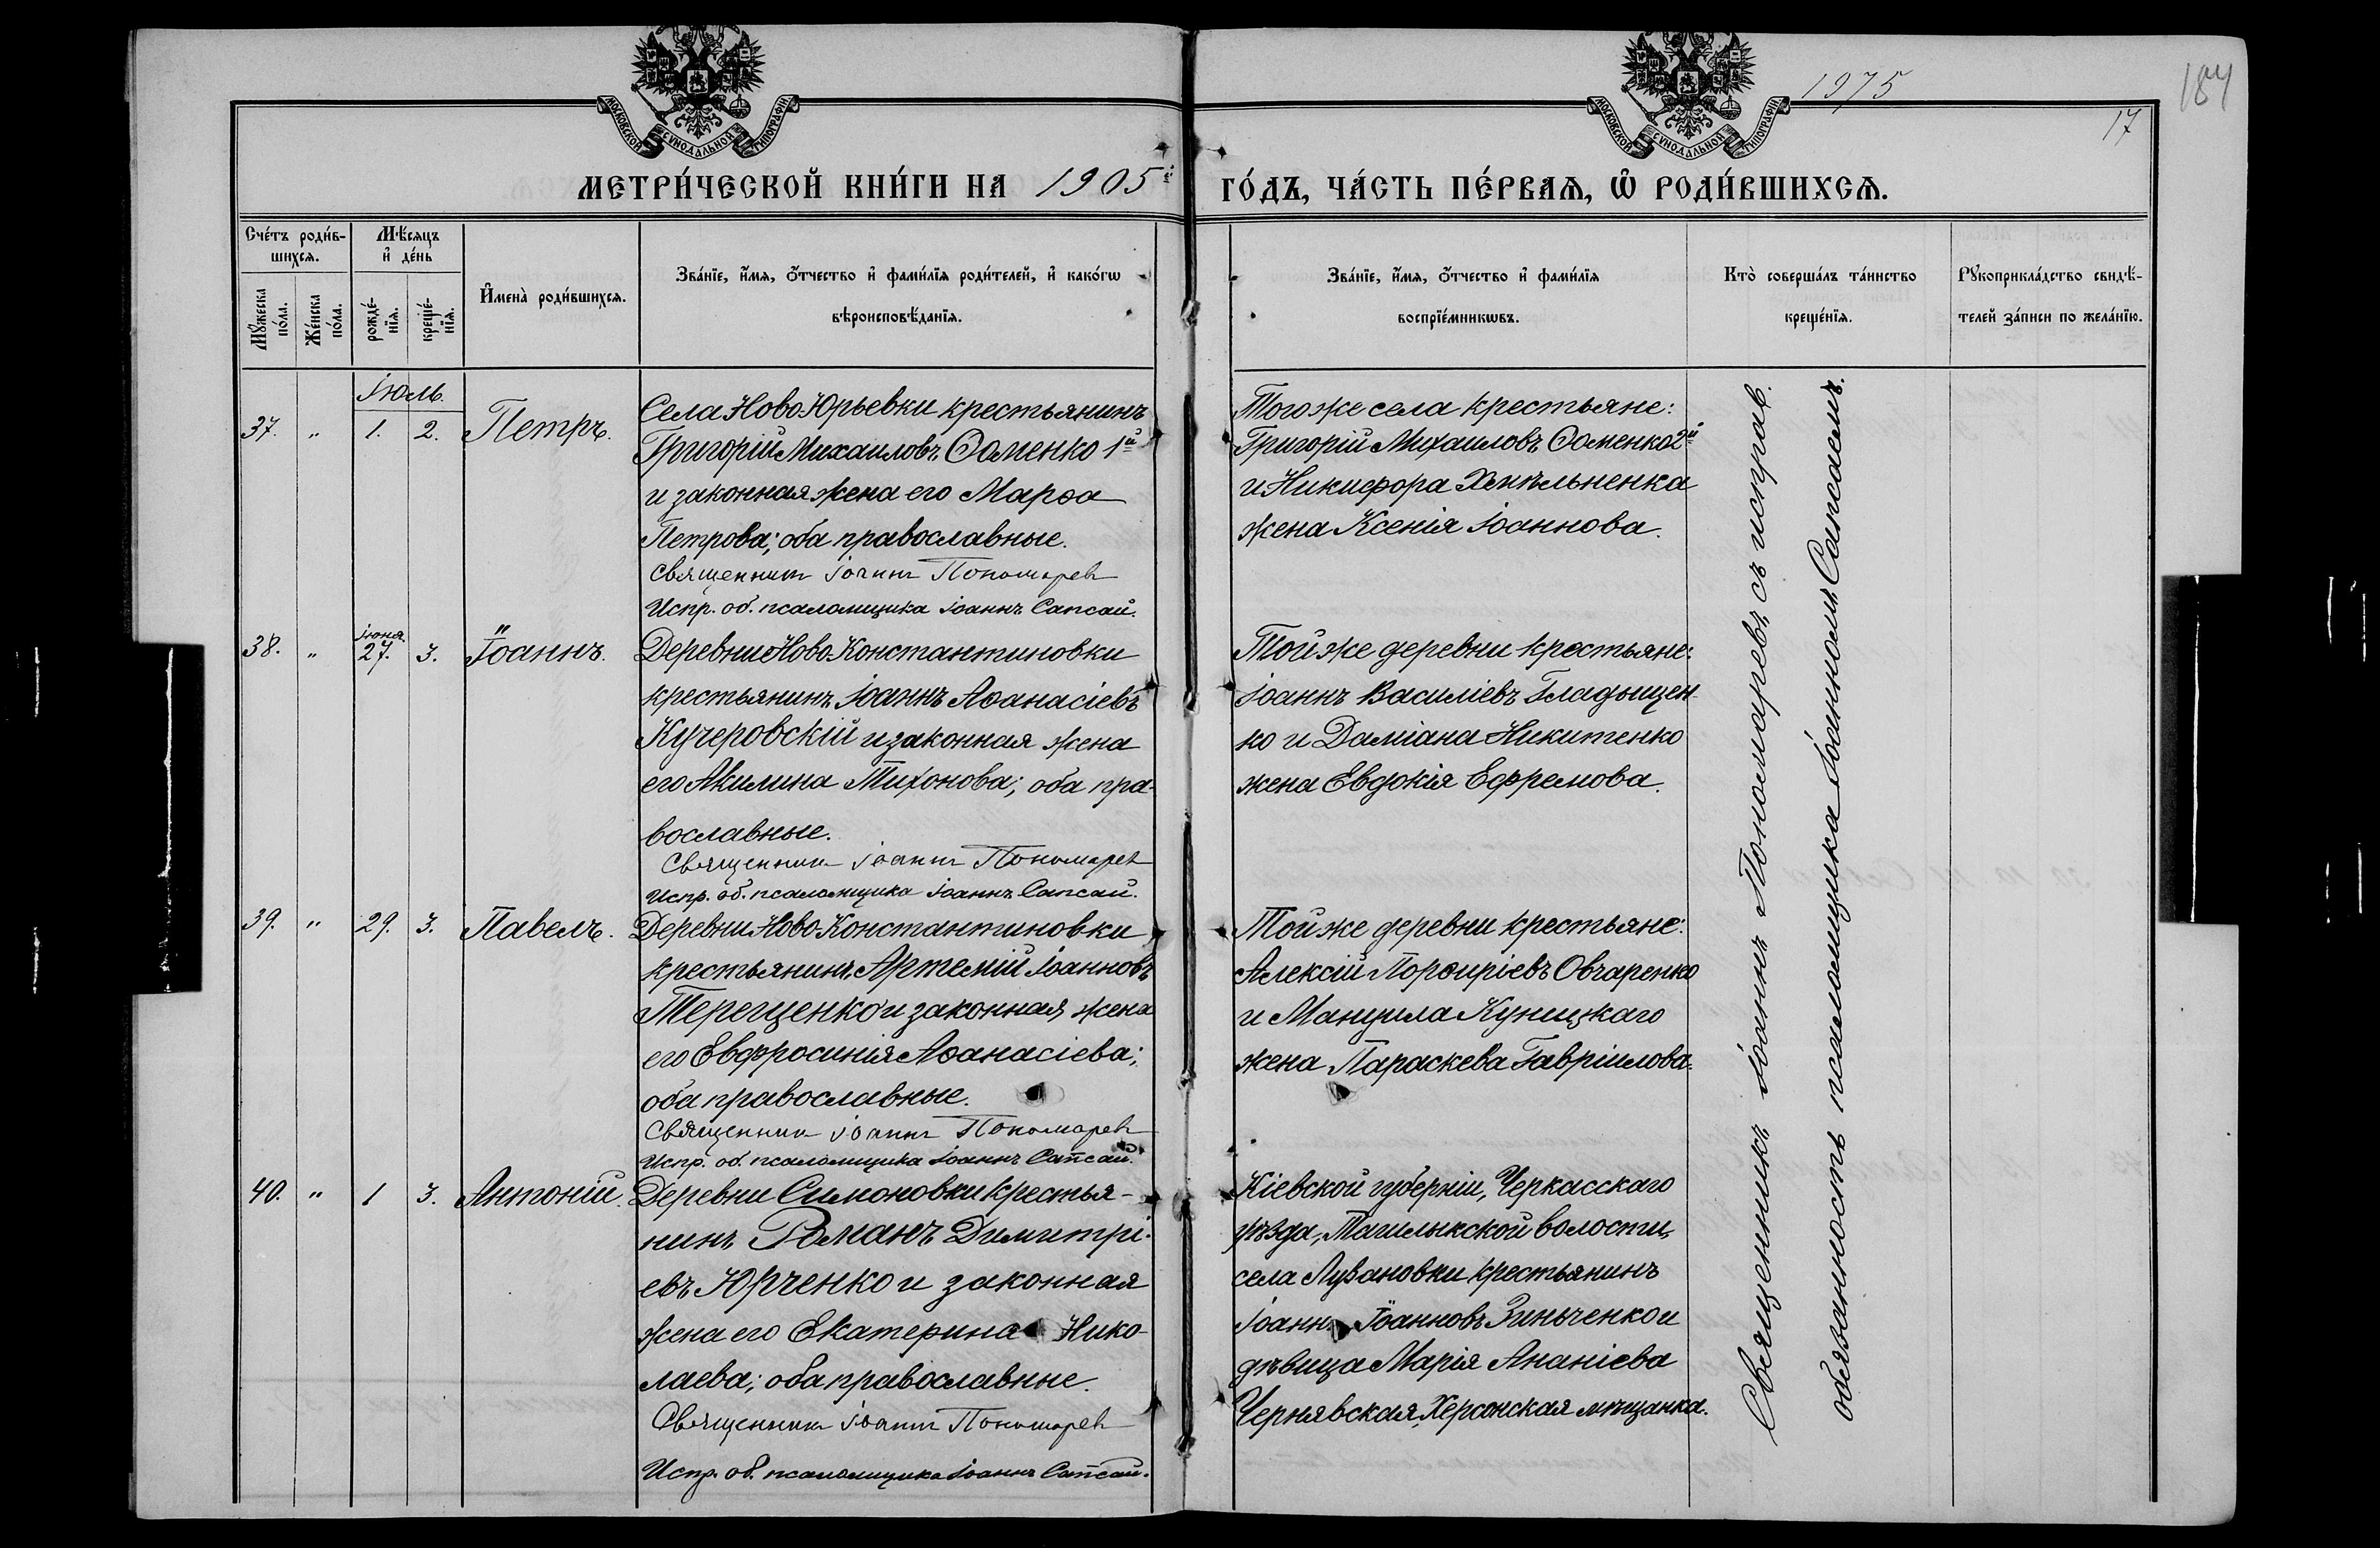 1975
184
17
МОСКОВСКОЙ СѴНОДАЛЬНОЙ ТИПОГРАФІИ.
МОСКОВСКОЙ СѴНОДАЛЬНОЙ ТИПОГРАФІИ.
МЕТРИ́ЧЕСКОЙ КНИ́ГИ НА 1905й ГО́ДЪ, ЧА́СТЬ ПЕ́РВАѦ, Ѡ҆ РОДИ́ВШИХСѦ.
Сче́тъ роди́в-
шихсѧ.
Мꙋ́жеска по́ла.
Же́нска по́ла.
Мѣ́сяцъ
и҆ де́нь
рожде́-
нїѧ.
креще́-
нїѧ.
И҆мена̀ роди́вшихсѧ.
Зва́нїе, и҆́мѧ, ѻ҆́тчество и҆ фами́лїѧ роди́телей, и҆ како́гѡ
вѣроисповѣ́данїѧ.
Зва́нїе, и҆́мѧ, ѻ҆́тчество и҆ фами́лїѧ
воспрїе́мникѡвъ.
Кто̀ соверша́лъ та́инство
креще́нїѧ.
Рꙋкоприкла́дство свидѣ́-
телей за́писи по жела́нїю.
Іюль.
37. " 1. 2. Петръ.
Села Ново-Юрьевки крестьянинъ
Григорій Михаиловъ Ѳоменко 1й
и законная жена его Марѳа
Петрова; оба православные.
Священникъ Іоаннъ Пономаревъ
Испр. об. псаломщика Іоаннъ Сапсай.
Того же села крестьяне:
Григорій Михаиловъ Ѳоменко 2й
и Никифора
жена Ксенія Іоаннова.
38. " Іюня 27. 3. Іоаннъ.
Деревни Ново-Константиновки
крестьянинъ Іоаннъ Аѳанасіевъ
Кучеровскій и законная жена
его Акилина Тихонова; оба пра-
вославные.
Священникъ Іоаннъ Пономаревъ
Испр. об. псаломщика Іоаннъ Сапсай.
Той же деревни крестьяне:
Іоаннъ Василіевъ Гладыщен-
ко и Даміана Никитенко
жена Евдокія Ефремова.
39. " 29. 3. Павелъ.
Деревни Ново-Константиновки
крестьянинъ Артемій Іоанновъ
Терещенко и законная жена
его Евфросинія Аѳанасіева;
оба православные.
Священникъ Іоаннъ Пономаревъ
Испр. об. псаломщика Іоаннъ Сапсай.
Той же деревни крестьяне:
Алексій Порѳиріевъ Овчаренко
и Мануила Куницкаго
жена Параскева Гавріилова.
40. " 1 3. Антоній.
Деревни Симоновки крестья-
нинъ Романъ Димитрі-
евъ Юрченко и законная
жена его Екатерина Нико-
лаева; оба православные.
Священникъ Іоаннъ Пономаревъ
Испр. об. псаломщика Іоаннъ Сапсай.
Кіевской губерніи, Черкасскаго
уѣзда, Ташлыкской волости,
села Лузановки крестьянинъ
Іоаннъ Іоанновъ Зинченко и
дѣвица Марія Ананіева
Чернявская, Херсонская мѣщанка.
Священникъ Іоаннъ Пономаревъ съ исправ.
обязанность псаломщика Іоанномъ Сапсаемъ.